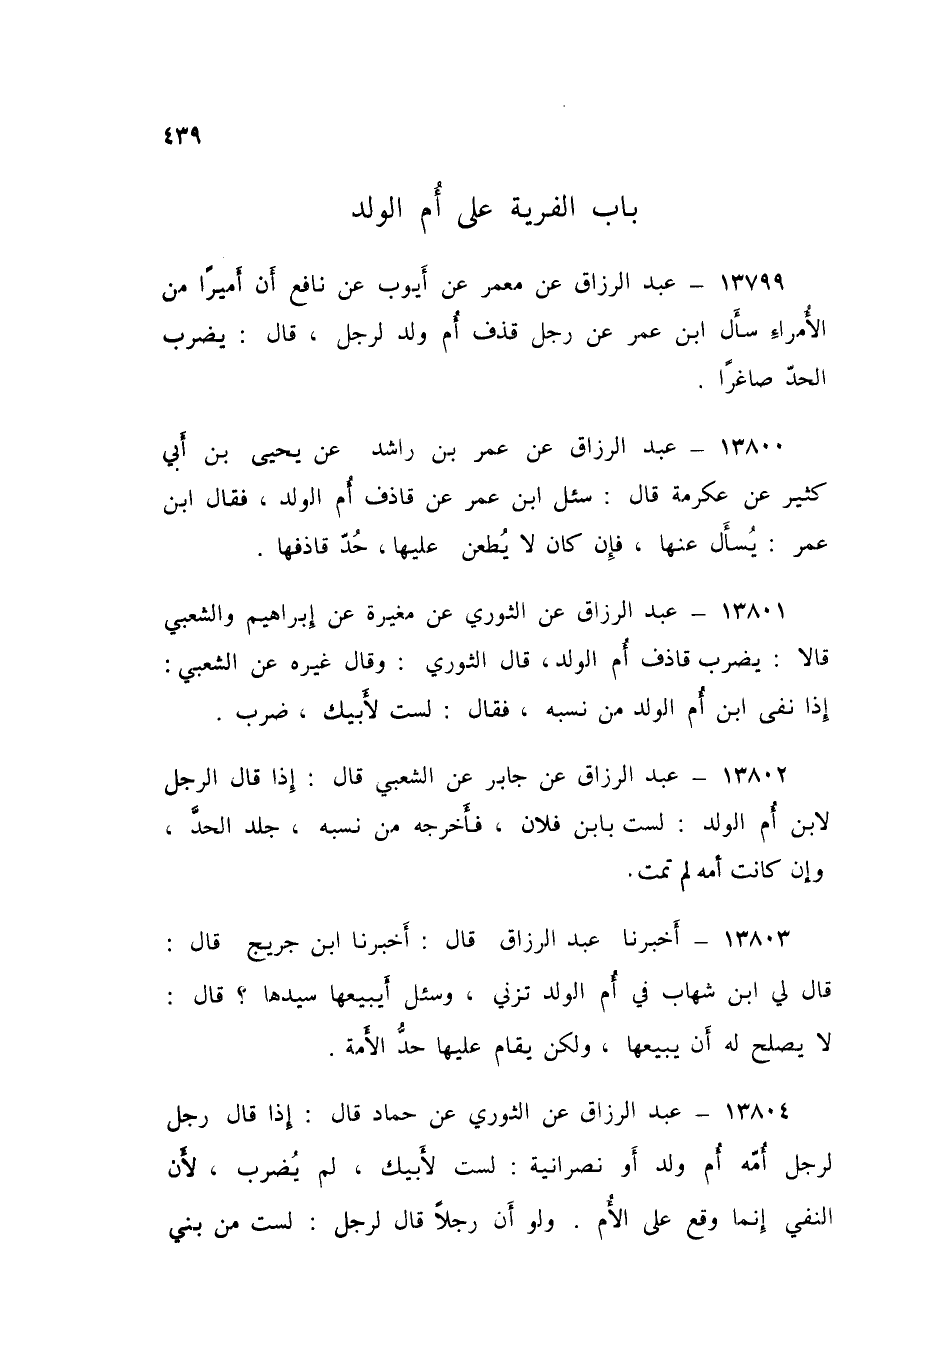 ٤٣٩
باب الفرية على أُم الولد
١٣٧٩٩ – عبد الرزاق عن معمر عن أَيوب عن نافع أَن أَميرًا من
الأُمراءِ سأَل ابن عمر عن رجل قذف أُم ولد لرجل ، قال : يضرب
الحدّ صاغرًا .
١٣٨٠٠ – عبد الرزاق عن عمر بن راشد عن يحيى بن أَبي
كثير عن عكرمة قال : سئل ابن عمر عن قاذف أُم الولد ، فقال ابن
عمر : يُسأَل عنها ، فإِن كان لا يُطعن عليها ، حُدّ قاذفها .
١٣٨٠١ – عبد الرزاق عن الثوري عن مغيرة عن إِبراهيم والشعبي
قالا : يضرب قاذف أُم الولد ، قال الثوري : وقال غيره عن الشعبي :
إِذا نفى ابن أُم الولد من نسبه ، فقال : لست لأَبيك ، ضرب .
١٣٨٠٢ – عبد الرزاق عن جابر عن الشعبي قال : إِذا قال الرجل
لابن أُم الولد : لست بابن فلان ، فأَخرجه من نسبه ، جلد الحدَّ ،
وإن كانت أمه لم تمت .
١٣٨٠٣ – أَخبرنا عبد الرزاق قال : أَخبرنا ابن جريج قال :
قال لي ابن شهاب في أُم الولد تزني ، وسئل أَيبيعها سيدها ؟ قال :
لا يصلح له أَن يبيعها ، ولكن يقام عليها حدُّ الأَمة .
١٣٨٠٤ – عبد الرزاق عن الثوري عن حماد قال : إِذا قال رجل
لرجل أُمّه أُم ولد أَو نصرانية : لست لأَبيك ، لم يُضرب ، لأَن
النفي إِنما وقع على الأُم . ولو أَن رجلاً قال لرجل : لست من بني